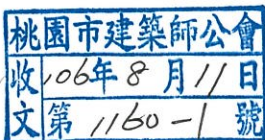 桃園市建築師公會
收 106年8月11日
文 第 1160-1 號